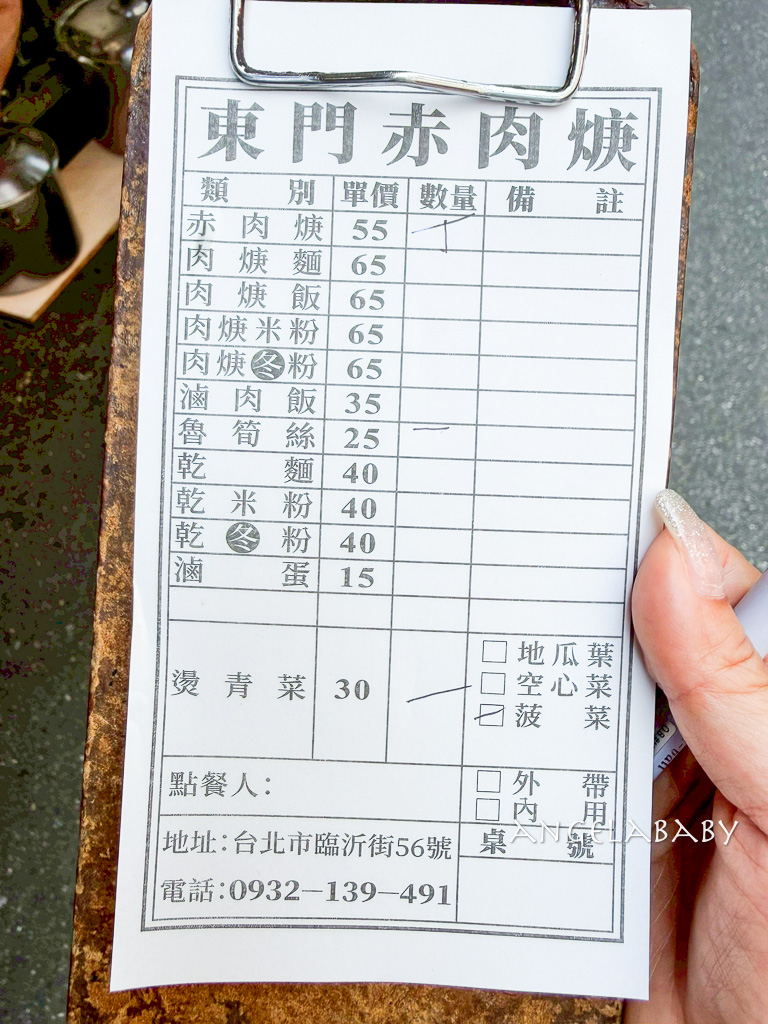 東門赤肉焿
類別 單價 數量 備註
赤肉焿 55
肉焿麵 65
肉焿飯 65
肉焿米粉 65
肉焿冬粉 65
滷肉飯 35
魯筍絲 25 一
乾麵 40
乾米粉 40
乾冬粉 40
滷蛋 15
燙青菜 30 一
□ 地瓜葉
□ 空心菜
☑ 菠菜
點餐人:
□ 外帶
□ 內用
地址:台北市臨沂街56號
桌號
電話:0932-139-491
ANGELABABY